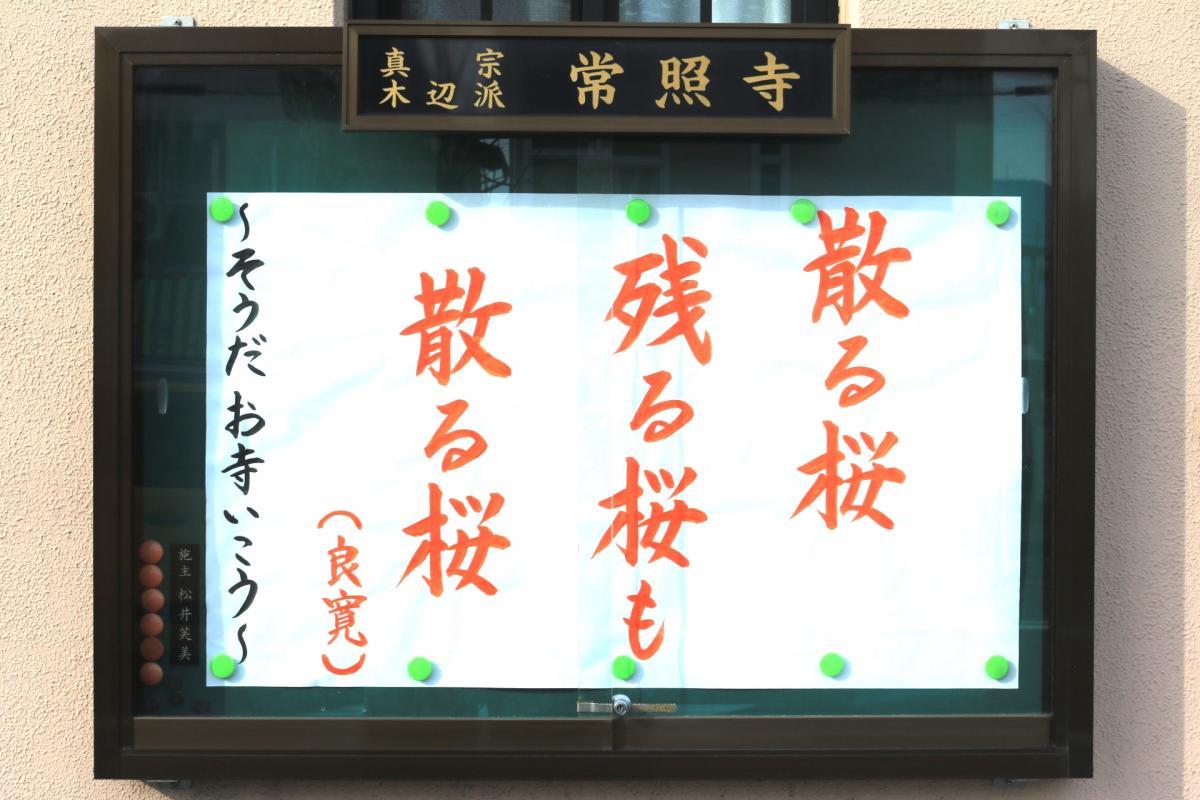 真宗
木辺派
常照寺
散る桜
残る桜も
散る桜
（良寛）
～そうだ お寺いこう～
施主 松井芙美